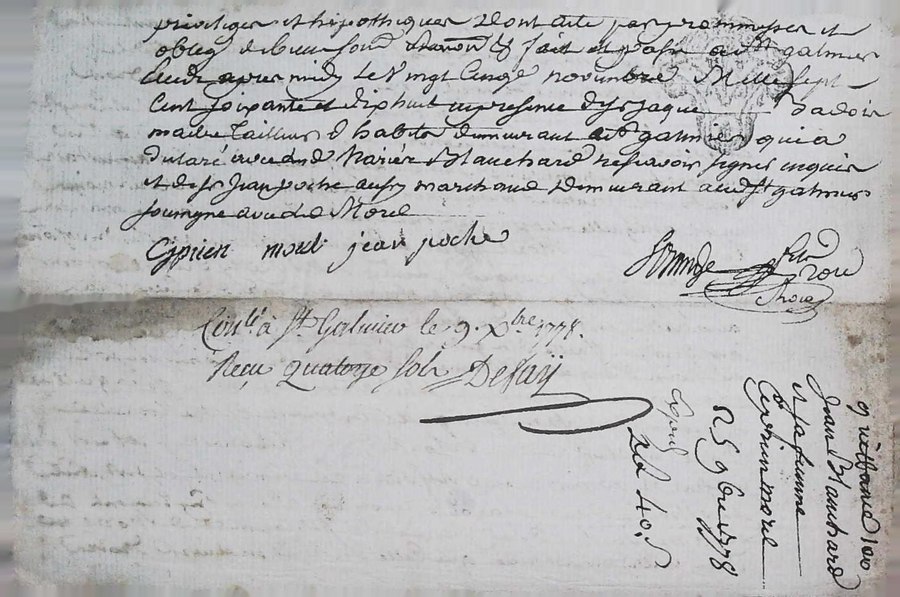 privileges et hipothiques dont acte par promesses et
oblig. de leur fond fait et passé a St galmier
apres midy le vingt cinqe novembre mille sept
cent soixante et dix huit en presence de sr Jaque Badois
maitre tailleur d'habits demeurant a St galmier qui a
declaré avec lesd. mariés Blanchard ne scavoir signer enquis
et de sr Jean poche aussy marchand demeurant aud. St galmier
soussigne avec led. Morel
Cyprien morel jean poche
Conlé à St Galmier le 9 Xbre 1778.
Reçu Quatorze sols Defay
quittance 100
Jean Blanchard
et sa femme
a Ciprien morel
25 9bre 1778
2d 40s